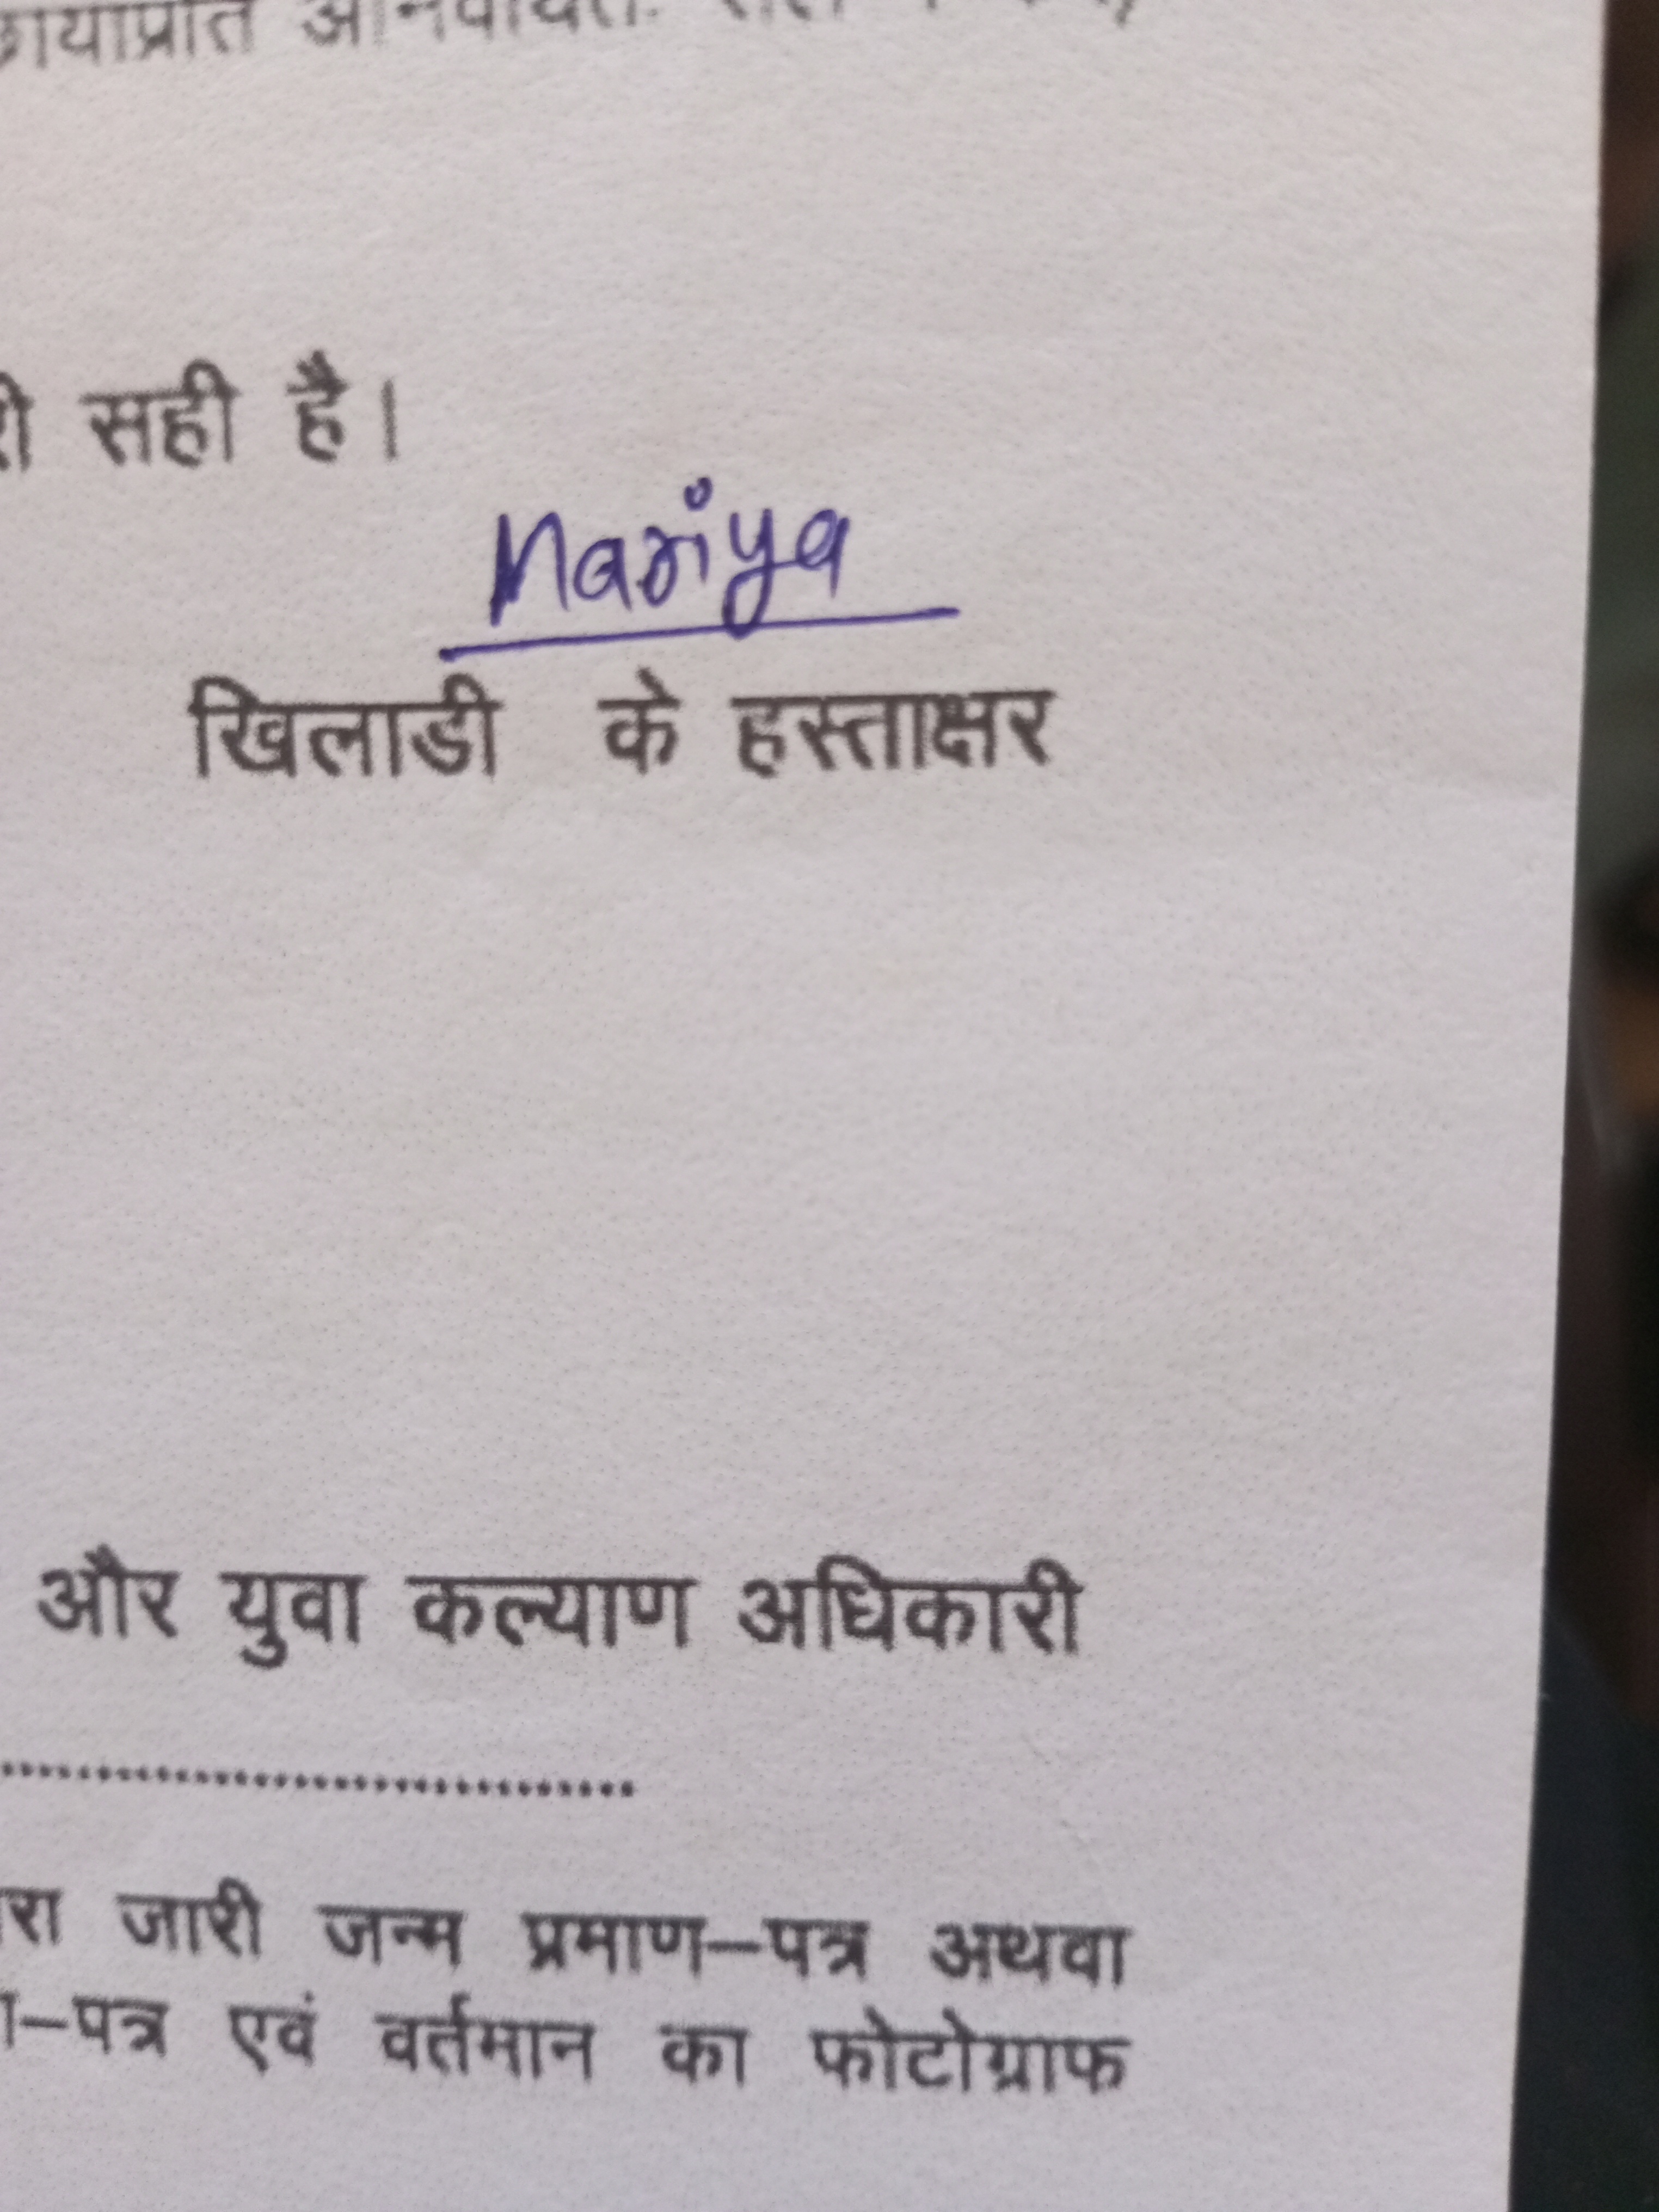 सही है।
Mariya
खिलाडी के हस्ताक्षर
और युवा कल्याण अधिकारी
................................
जारी जन्म प्रमाण–पत्र अथवा
–पत्र एवं वर्तमान का फोटोग्राफ